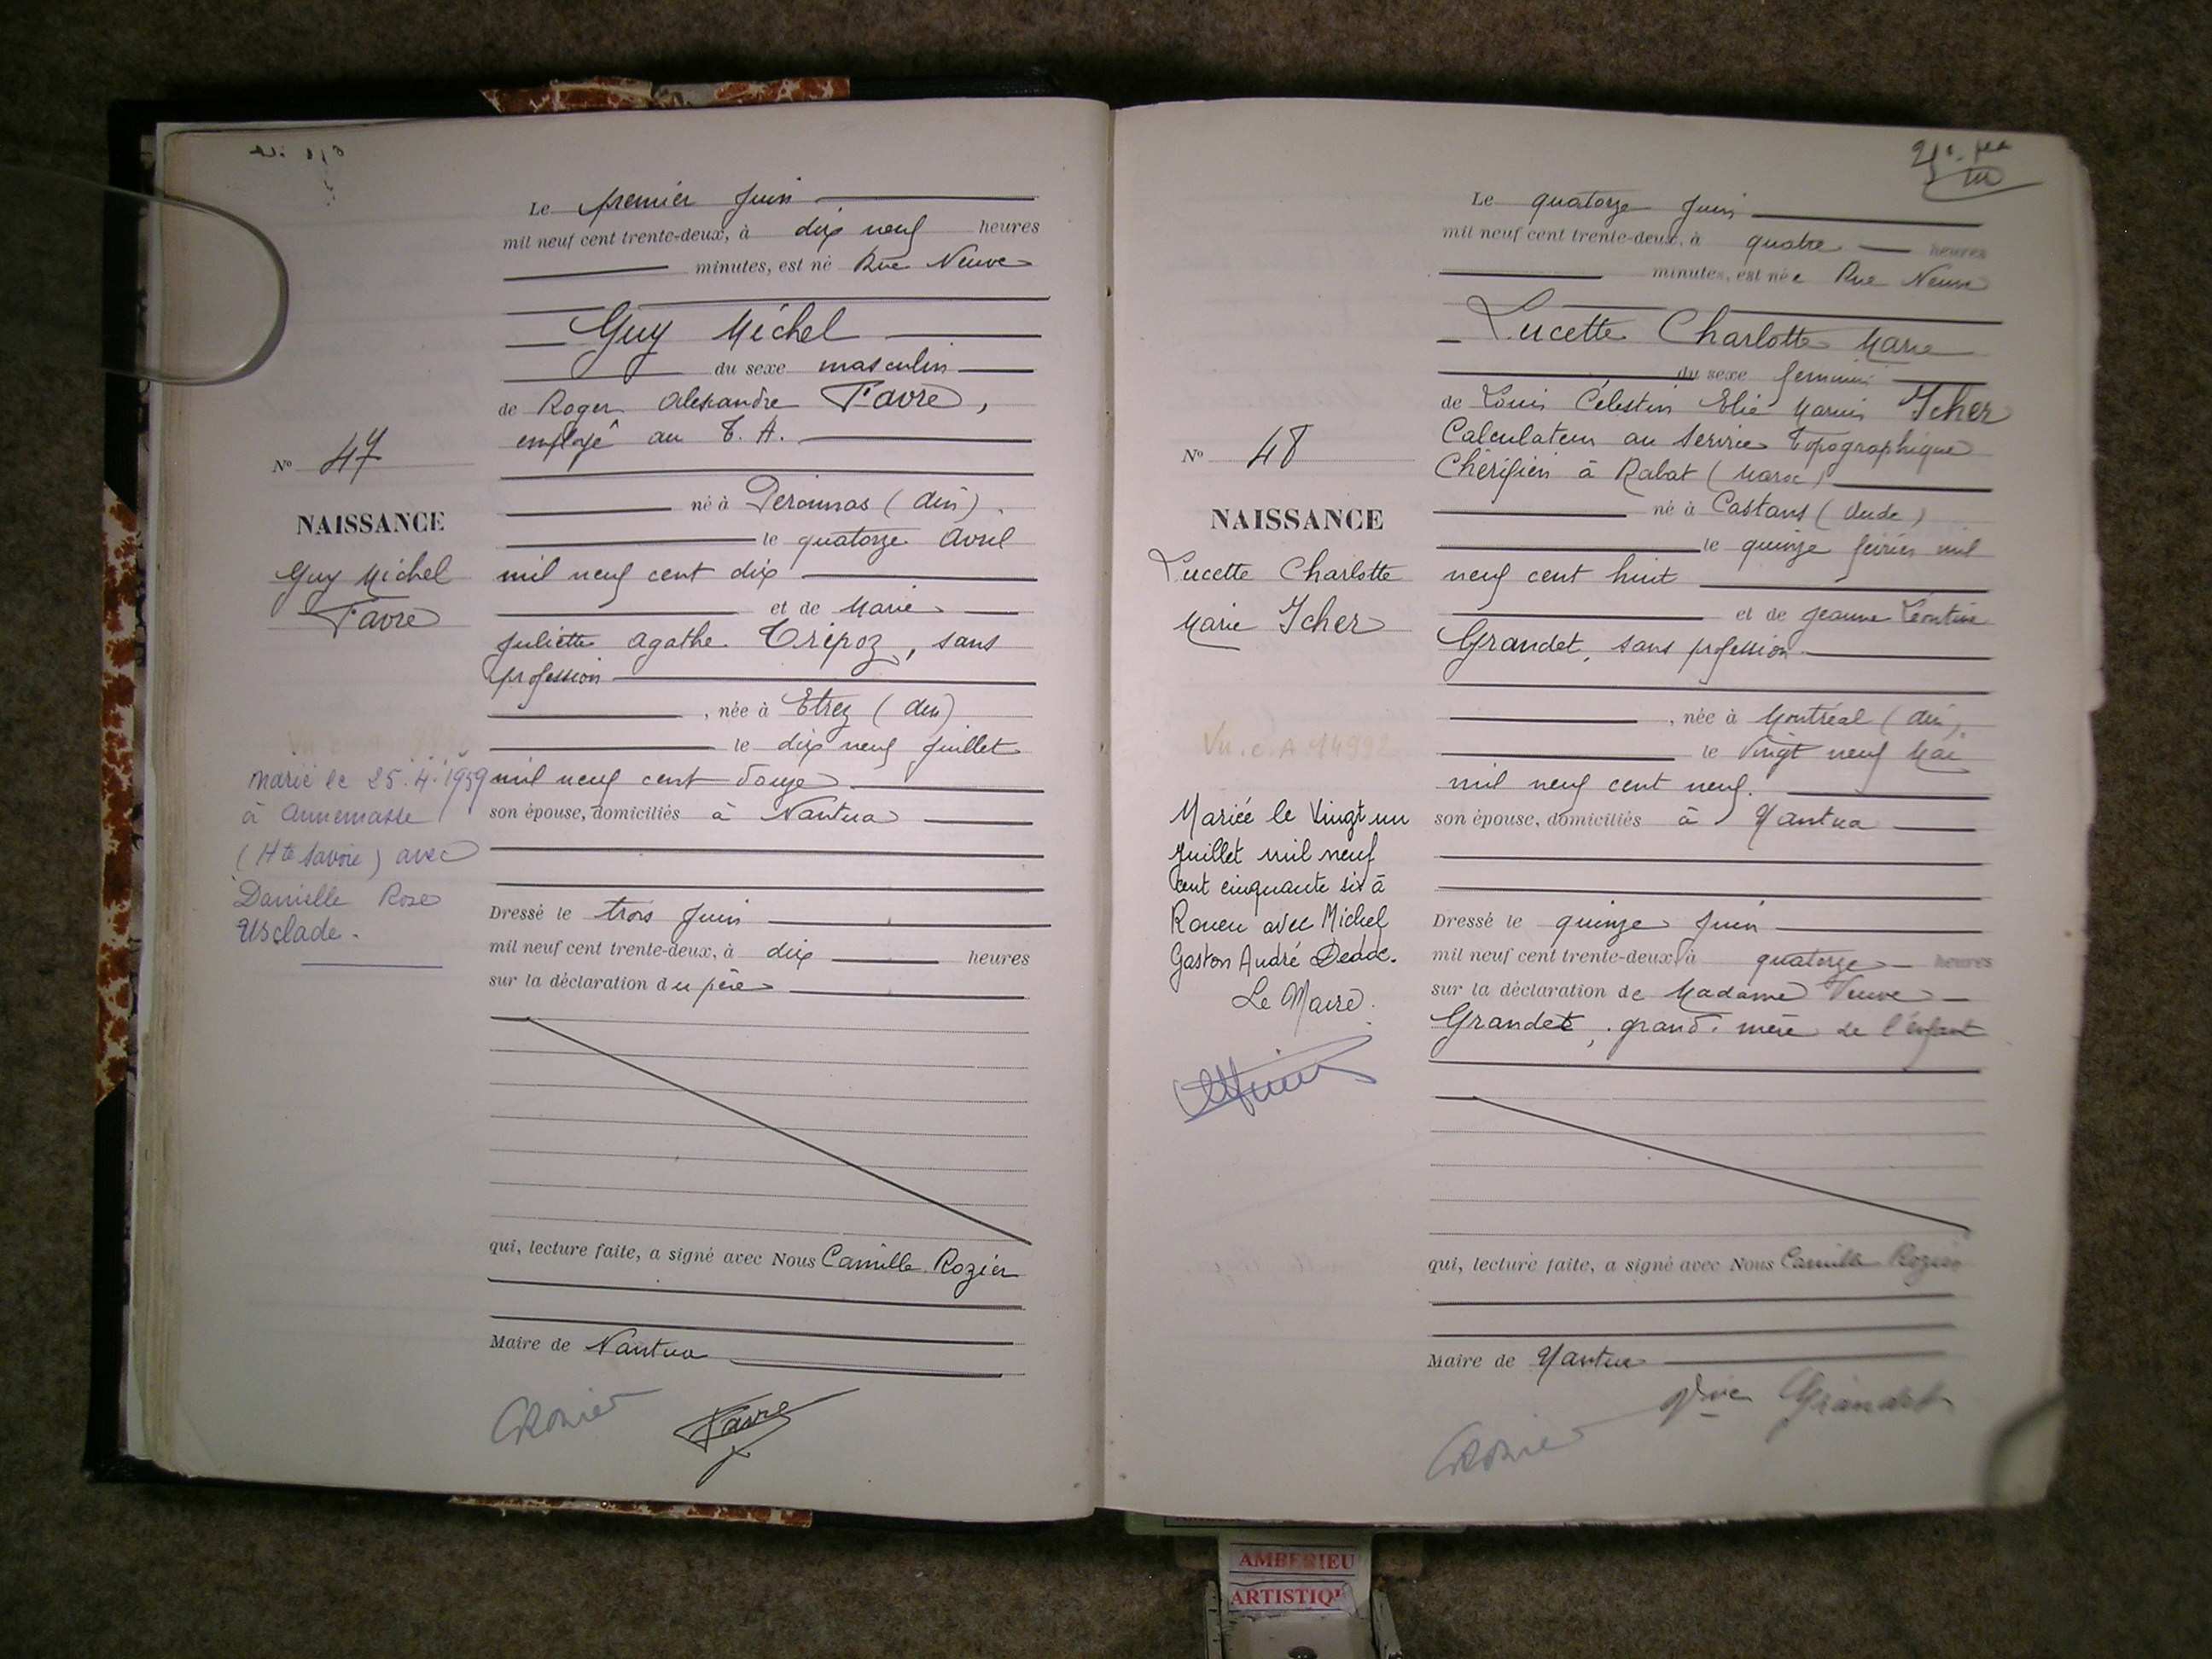 Le premier Juin
mil neuf cent trente-deux, à dix neuf heures
minutes, est né Rue Neuve
Guy Michel
du sexe masculin
de Roger Alexandre Favre,
employé au T. A.
né à Peronnas (Ain),
le quatorze Avril
mil neuf cent dix
et de Marie
Juliette Agathe Tripoz, sans
profession
, née à Etrez (Ain)
le dix neuf Juillet
mil neuf cent douze
son épouse, domiciliés à Nantua
Dressé le trois Juin
mil neuf cent trente-deux, à dix heures
sur la déclaration du père
qui, lecture faite, a signé avec Nous Camille Rozier
Maire de Nantua
CRozier Favre
N° 47
NAISSANCE
Guy Michel
Favre
Marié le 25.4.1959
à Annemasse
(Hte Savoie) avec
Danielle Rose
Usclade.
Le quatorze Juin
mil neuf cent trente-deux, à quatre heures
minutes, est née Rue Neuve
Lucette Charlotte Marie
du sexe feminin
de Louis Célestin Elie Marius Icher
Calculateur au Service Topographique
Chérifien à Rabat (Maroc)
né à Castans (Aude)
le quinze février mil
neuf cent huit
et de Jeanne Léontine
Grandet, sans profession
, née à Montréal (Ain),
le Vingt neuf Mai
mil neuf cent neuf.
son épouse, domiciliés à Nantua
Dressé le quinze Juin
mil neuf cent trente-deux, à quatorze heures
sur la déclaration de Madame Veuve
Grandet, grand'mère de l'enfant
qui, lecture faite, a signé avec Nous Camille Rozier
Maire de Nantua
CRozier Vve Grandet
N° 48
NAISSANCE
Lucette Charlotte
Marie Icher
Mariée le Vingt un
Juillet mil neuf
cent cinquante six à
Rouen avec Michel
Gaston André
Le Maire.
AMBERIEU
ARTISTIQ